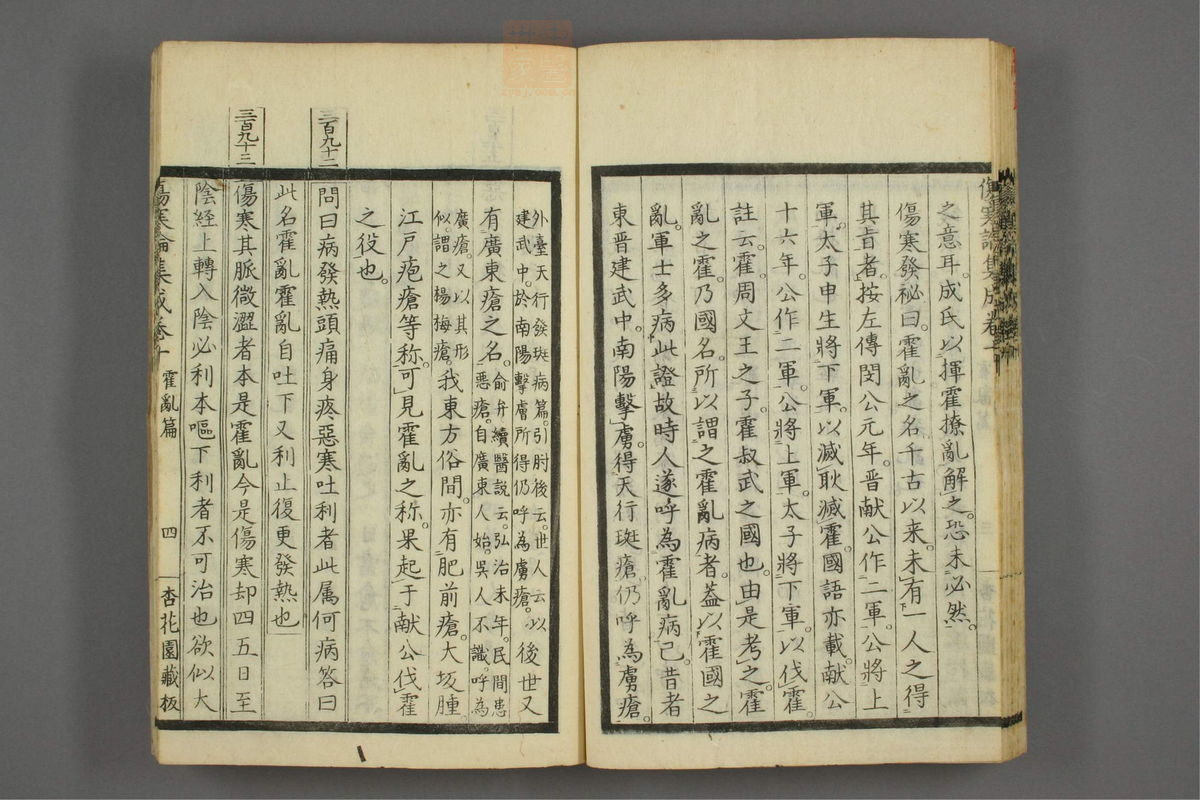 之意耳。成氏以揮霍撩亂解之。恐未必然。
傷寒發祕曰。霍亂之名千古以来。未有一人之得
其旨者。按左傳閔公元年。晋献公作二軍。公將上
軍。太子申生將下軍。以滅耿滅霍。國語亦載献公
十六年。公作二軍。公將上軍。太子將下軍。以伐霍。
註云。霍周文王之子。霍叔武之國也。由是考之霍
亂之霍。乃國名。所以謂之霍亂病者。蓋以霍國之
亂。軍士多病此證。故時人遂呼為霍亂病已。昔者
東晋建武中。南陽擊虜。得天行斑瘡。仍呼為虜瘡。
外臺天行發斑病篇。引肘後云。世人云。以
建武中。於南陽擊虜所得仍呼為虜瘡。
後世又
有廣東瘡之名。
俞弁續醫説云。弘治末年。民間患
惡瘡。自廣東人始。吳人不識。呼為
廣瘡。又以其形
似。謂之楊梅瘡。
我東方俗間。亦有肥前瘡。大坂腫。
江戸疱瘡等称。可見霍亂之称。果起于献公伐霍
之役也。
三百九十二
問曰病發熱頭痛身疼惡寒吐利者此属何病答曰
此名霍亂霍亂自吐下又利止復更發熱也
三百九十三
傷寒其脈微澀者本是霍亂今是傷寒却四五日至
陰経上轉入陰必利本嘔下利者不可治也欲似大
傷寒論集成卷十 霍亂篇 四 杏花園藏板